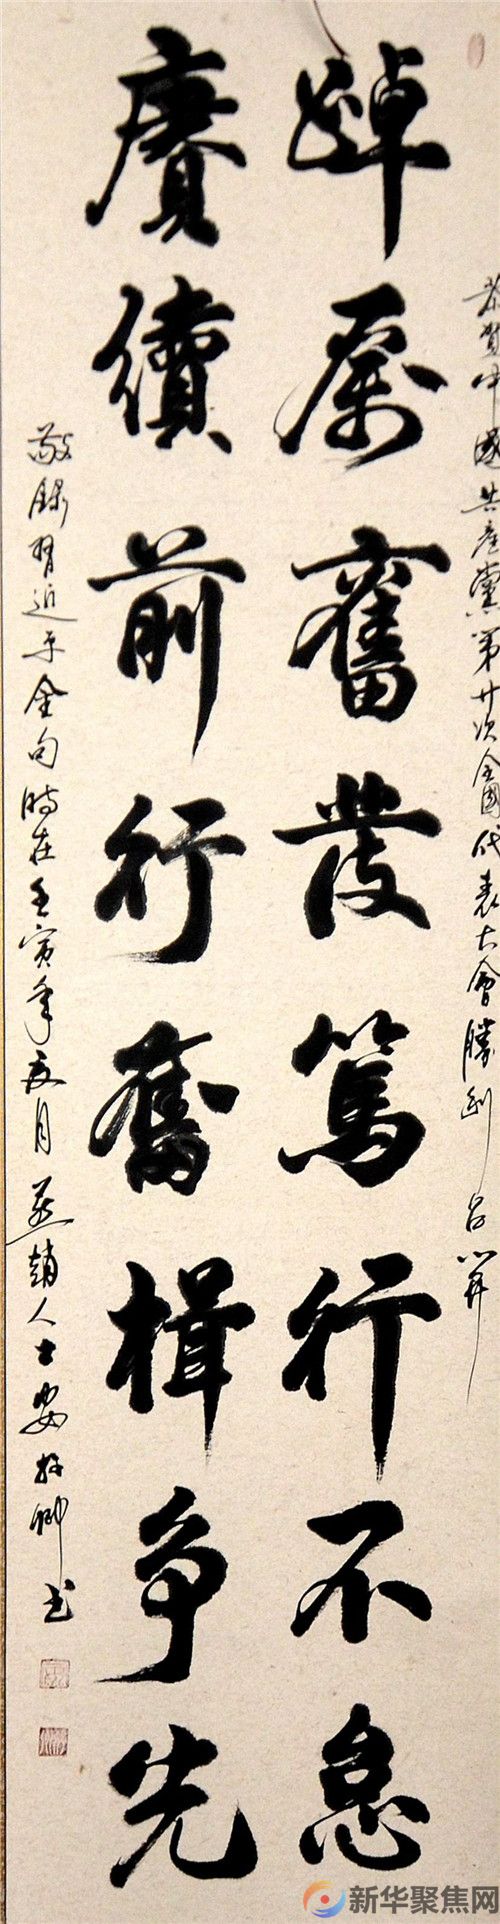 恭賀中國共產黨第廿次全國代表大會勝利召開
踔厲奮發篤行不怠
賡續前行奮楫争先
敬錄習近平金句時在壬寅年夏月燕趙人士安卿书
新华聚焦网